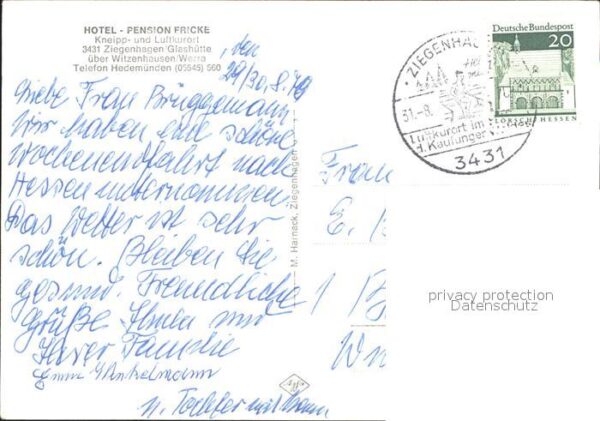 HOTEL - PENSION FRICKE
Kneipp- und Luftkurort
3431 Ziegenhagen/Glashütte
über Witzenhausen/Werra
Telefon Hedemünden (05545) 560
, den
29/30.8.70
Liebe Frau Brüggemann
Wir haben eine schöne
Wochenendfahrt nach
Hessen unternommen.
Das Wetter ist sehr
schön. Bleiben Sie
gesund. Freundliche
Grüße Ihnen und
Ihrer Familie
Emmi Winkelmann
u. Tochter mit Mann
M. Harnack, Ziegenhagen
Frau
E.
1
ZIEGENHAG
31.-8.
Luftkurort im
Kaufunger
3431
Deutsche Bundespost
20
LORSCH HESSEN
privacy protection
Datenschutz